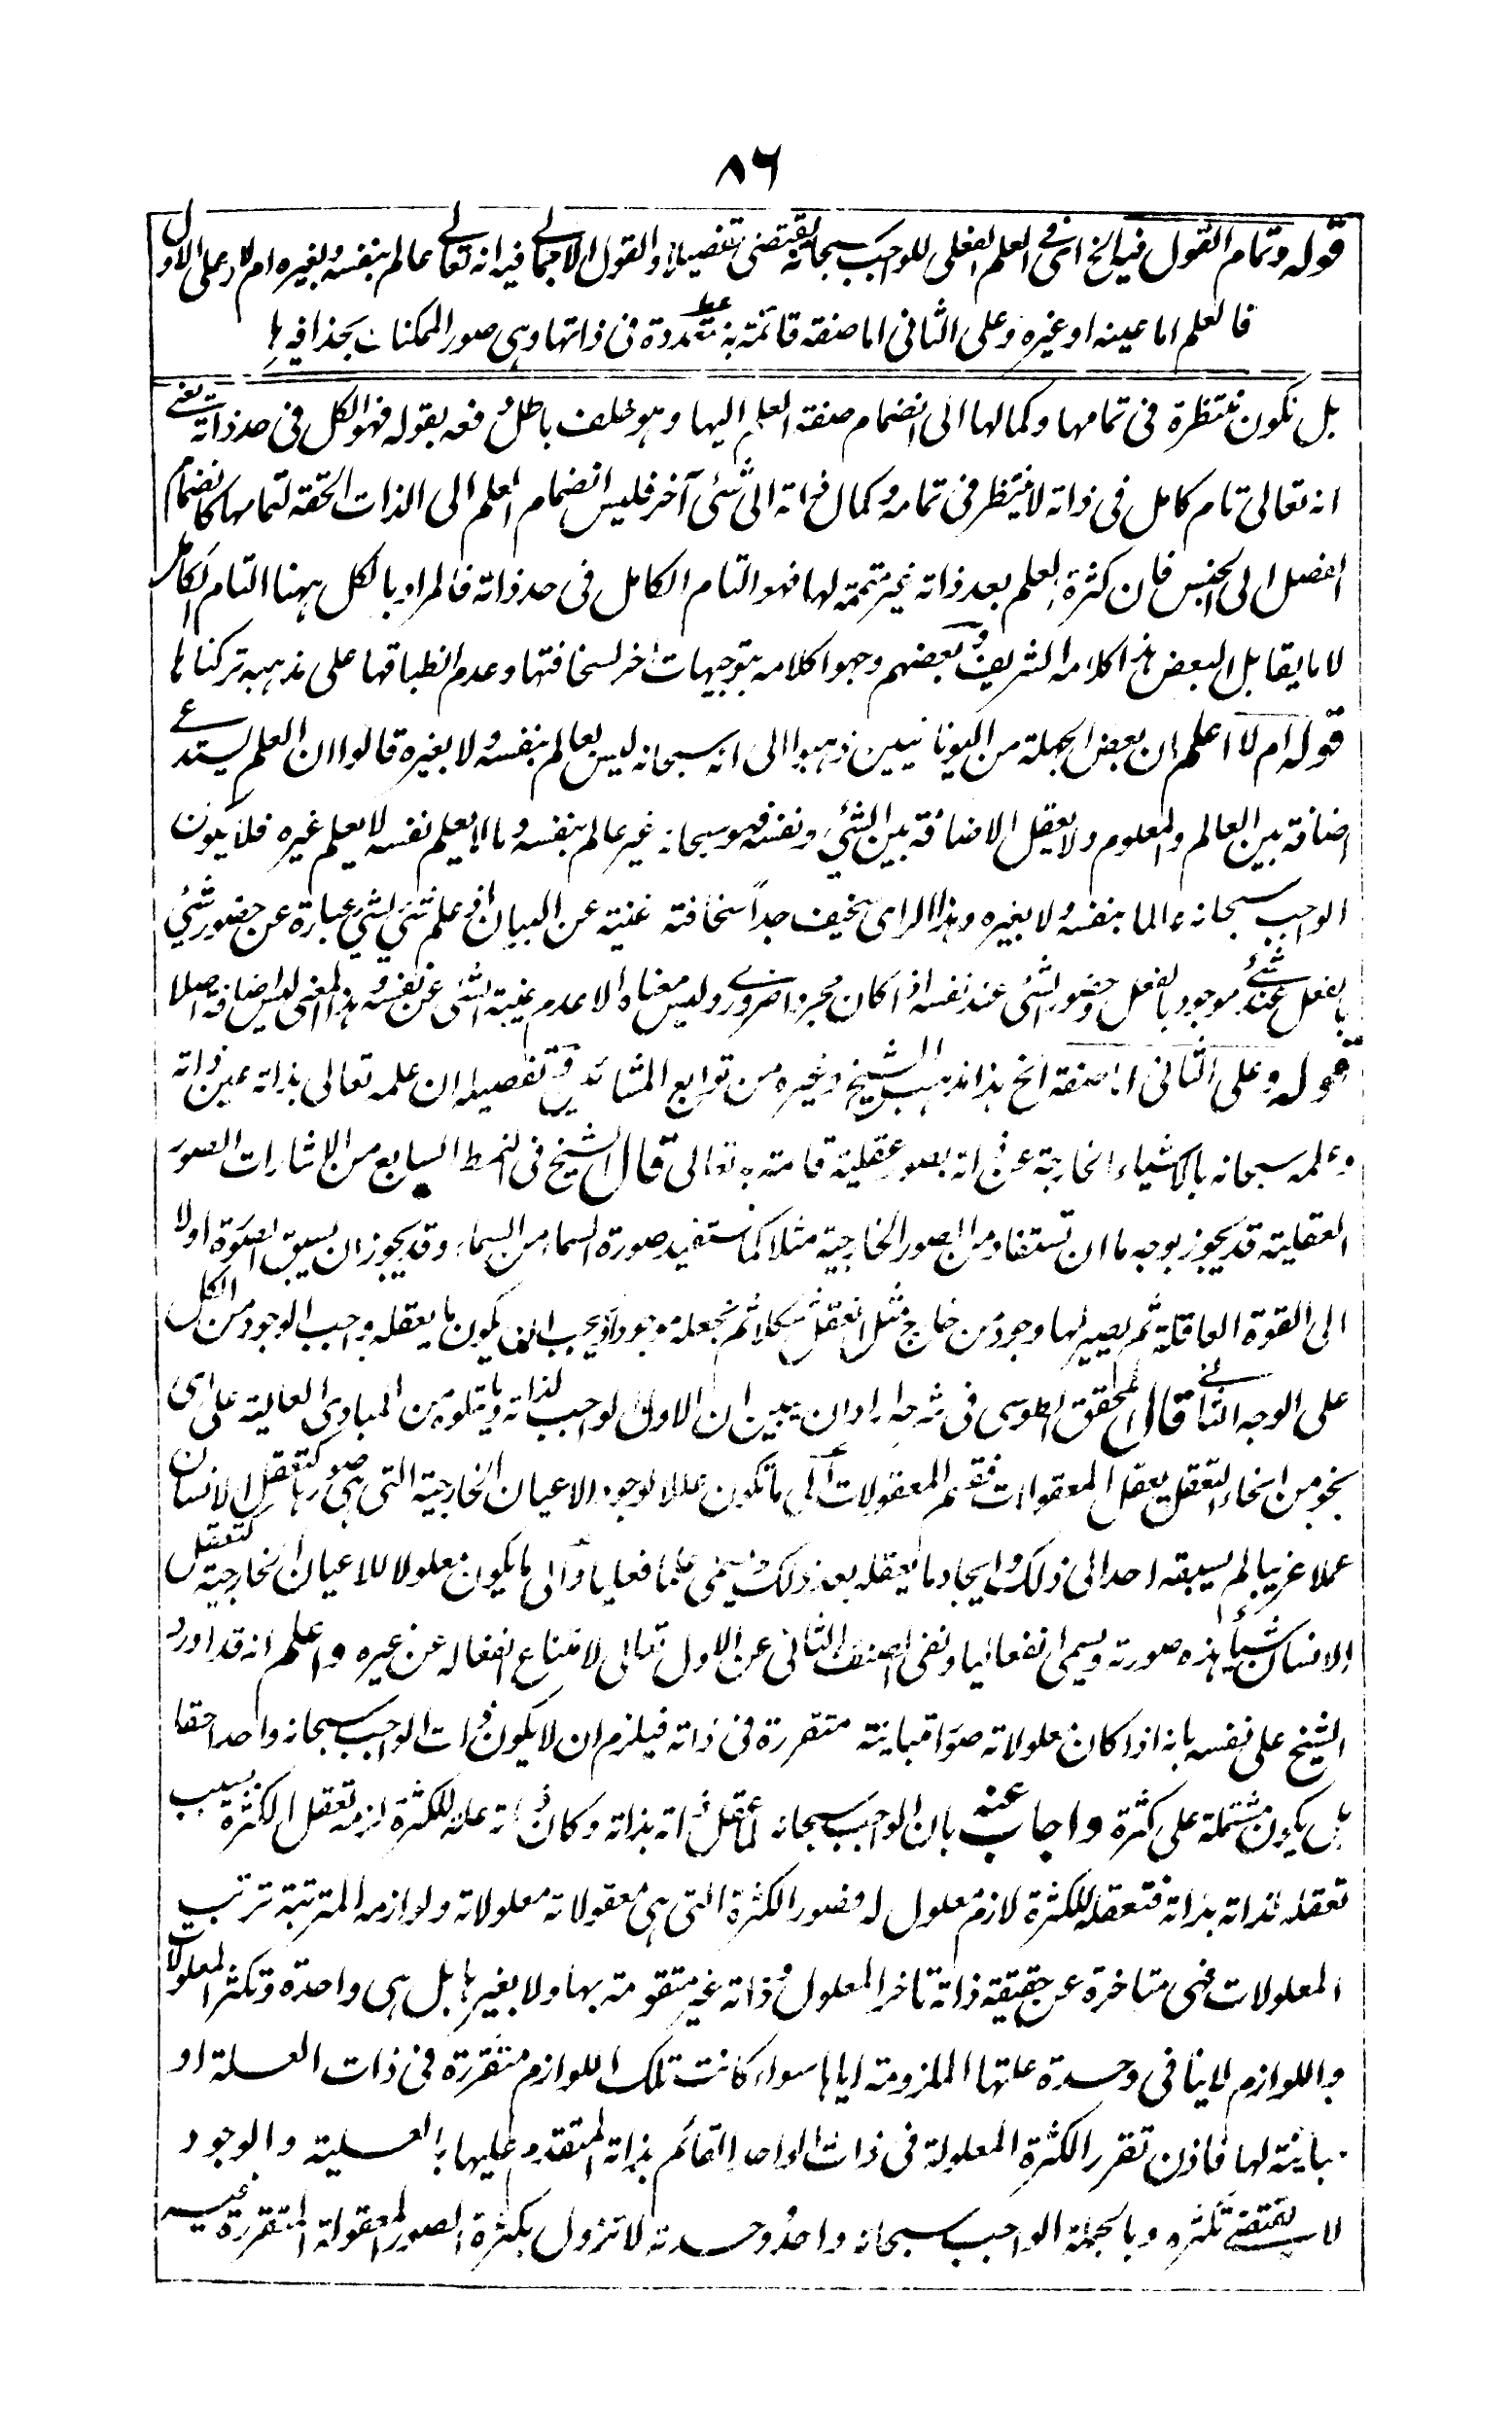 ٨٦
قوله وتمام القول فيه الخ اى فى العلم الفعلى للواجب سبحانه يقتضى تفصيلا والقول الاجمالى فيه انه تعالى عالم بنفسه وبغيره ام لا وعلى الاول
فالعلم اما عينه او غيره وعلى الثانى اما صفته قائمة به متعددة فى ذاتها وهى صور الممكنات بحذافيرها
بل تكون منتظرة فى تمامها وكمالها الى انضمام صفته العلم اليها وهو خلف باطل دفعه بقوله فهو الكل فى حد ذاته يعنى
انه تعالى تام كامل فى ذاته لا ينتظر فى تمامه وكمال ذاته الى شئ آخر فليس انضمام العلم الى الذات الحقة لتمامها كانضمام
الفصل الى الجنس فان كثرة العلم بعد ذاته غير متممة لها فهو التام الكامل فى حد ذاته فالمراد بالكل ههنا التام الكامل
لا ما يقابل البعض هذا كلامه الشريف وبعضهم وجهوا كلامه بتوجيهات اخر لسخافتها وعدم انطباقها على مذهبه تركناها
قوله ام لا اعلم ان بعض الجهلة من اليونانيين ذهبوا الى انه سبحانه ليس بعالم بنفسه ولا بغيره قالوا ان العلم يستدعى
اضافة بين العالم والمعلوم ولا يعقل الاضافة بين الشئ ونفسه فهو سبحانه غير عالم بنفسه وما لا يعلم نفسه لا يعلم غيره فلا يكون
الواجب سبحانه عالما بنفسه ولا بغيره وهذا الراى سخيف جداً سخافته غنية عن البيان اذ علم شئ لشئ عبارة عن حضور شئ
بالفعل عند شئ موجود بالفعل وحضور الشئ عند نفسه اذا كان مجردا ضرورى وليس معناه الا عدم غيبة الشئ عن نفسه وهذا المعنى ليس اضافة اصلا
قوله وعلى الثانى اما صفته الخ هذا مذهب الشيخ وغيره من توابع المشائية وتفصيله ان علمه تعالى بذاته عين ذاته
وعلمه سبحانه بالاشياء الخارجة عن ذاته بصور عقلية قائمة به تعالى قال الشيخ فى النمط السابع من الاشارات الصور
العقلية قد يجوز بوجه ما ان تستفاد من الصور الخارجية مثلا كما تستفيد صورة السماء من السماء وقد يجوز ان يسبق الصورة اولا
الى القوة العاقلة ثم يصير لها وجود من خارج مثل ما تعقل شكلا ثم تجعله موجودا ويجب ان يكون ما يعقله واجب الوجود من الكل
على الوجه الثانى قال المحقق الطوسى فى شرحه اراد ان يبين ان الاول الواجب لذاته وما يتلوه من المبادى العالية على اى
نحو من انحاء التعقل يعقل المعقولات فقسم المعقولات الى ما تكون عللا لوجود الاعيان الخارجية التى هى صورها كتعقل الانسان
عملا غريبا لم يسبقه احد الى ذلك وايجاد ما يعقله بعد ذلك ويسمى علما فعليا والى ما يكون معلولا للاعيان الخارجية كتعقل
الانسان شيئا هذه صورته ويسمى انفعاليا ونفى الصنف الثانى عن الاول تعالى لامتناع انفعاله عن غيره واعلم انه قد اورد
الشيخ على نفسه بانه اذا كان معلولاته صورا متباينة متقررة فى ذاته فيلزم ان لا يكون ذات الواجب سبحانه واحدا حقا
بل يكون مشتملة على كثرة واجاب عنه بان الواجب سبحانه لما عقل ذاته بذاته وكان ذاته علة للكثرة لزمه تعقل الكثرة بسبب
تعقله لذاته بذاته فتعقله للكثرة لازم معلول له فصور الكثرة التى هى معقولاته معلولاته ولوازمه المترتبة ترتب
المعلولات فهى متاخرة عن حقيقة ذاته تاخر المعلول وذاته غير متقومة بها ولا بغيرها بل هى واحدة وتكثر المعلولات
واللوازم لا ينافى وحدة علتها الملزومة اياها سواء كانت تلك اللوازم متقررة فى ذات العلة او
مباينة لها فاذن تقرر الكثرة المعلولة فى ذات الواحد القائم بذاته المتقدم عليها بالعلية والوجود
لا يقتضى تكثره وبالجملة الواجب سبحانه واحد ووحدته لا تزول بكثرة الصور المعقولة المتقررة فيه